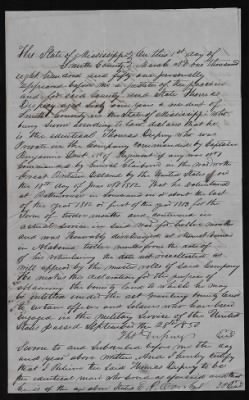 The State of Mississippi } On this 1st day of
Smith County } March A D one thousand
eight hundred and fifty one personally
appeared before me a Justice of the peace in
and for said County and State Thomas
Dupuy aged Sixty one years a resident of
Smith County in the State of Mississippi who
being duly Sworn to law declares that he
is the identical Thomas Dupuy who was
Private in the Company commanded by Captain
Benjamin Dent Regiment of
commanded by in the war with
Great Britain declared by the United States on
the 18th day of June A D 1812 That he volunteered
at in or about the last
of the year 1812 or first of the year 1813 for the
term of months and continued in
actual service in said war for months
and was Honorably discharged at
in Alabama months from the date of
of his volunteering the date not recollected as
will appear by the muster rolls of said Company
He makes this declaration for the purpose of
obtaining the bounty land to which he may
be entitled under the act granting bounty land
to certain officers and soldiers who have been
engaged in the military service of the United
States passed September the 28th 1850
Thos Dupuy
Sworn to and Subscribed before me the day
and year above written And I hereby certify
that I believe the said Thomas Dupuy to be
the identical man who aforesaid and that
he is of the age above stated